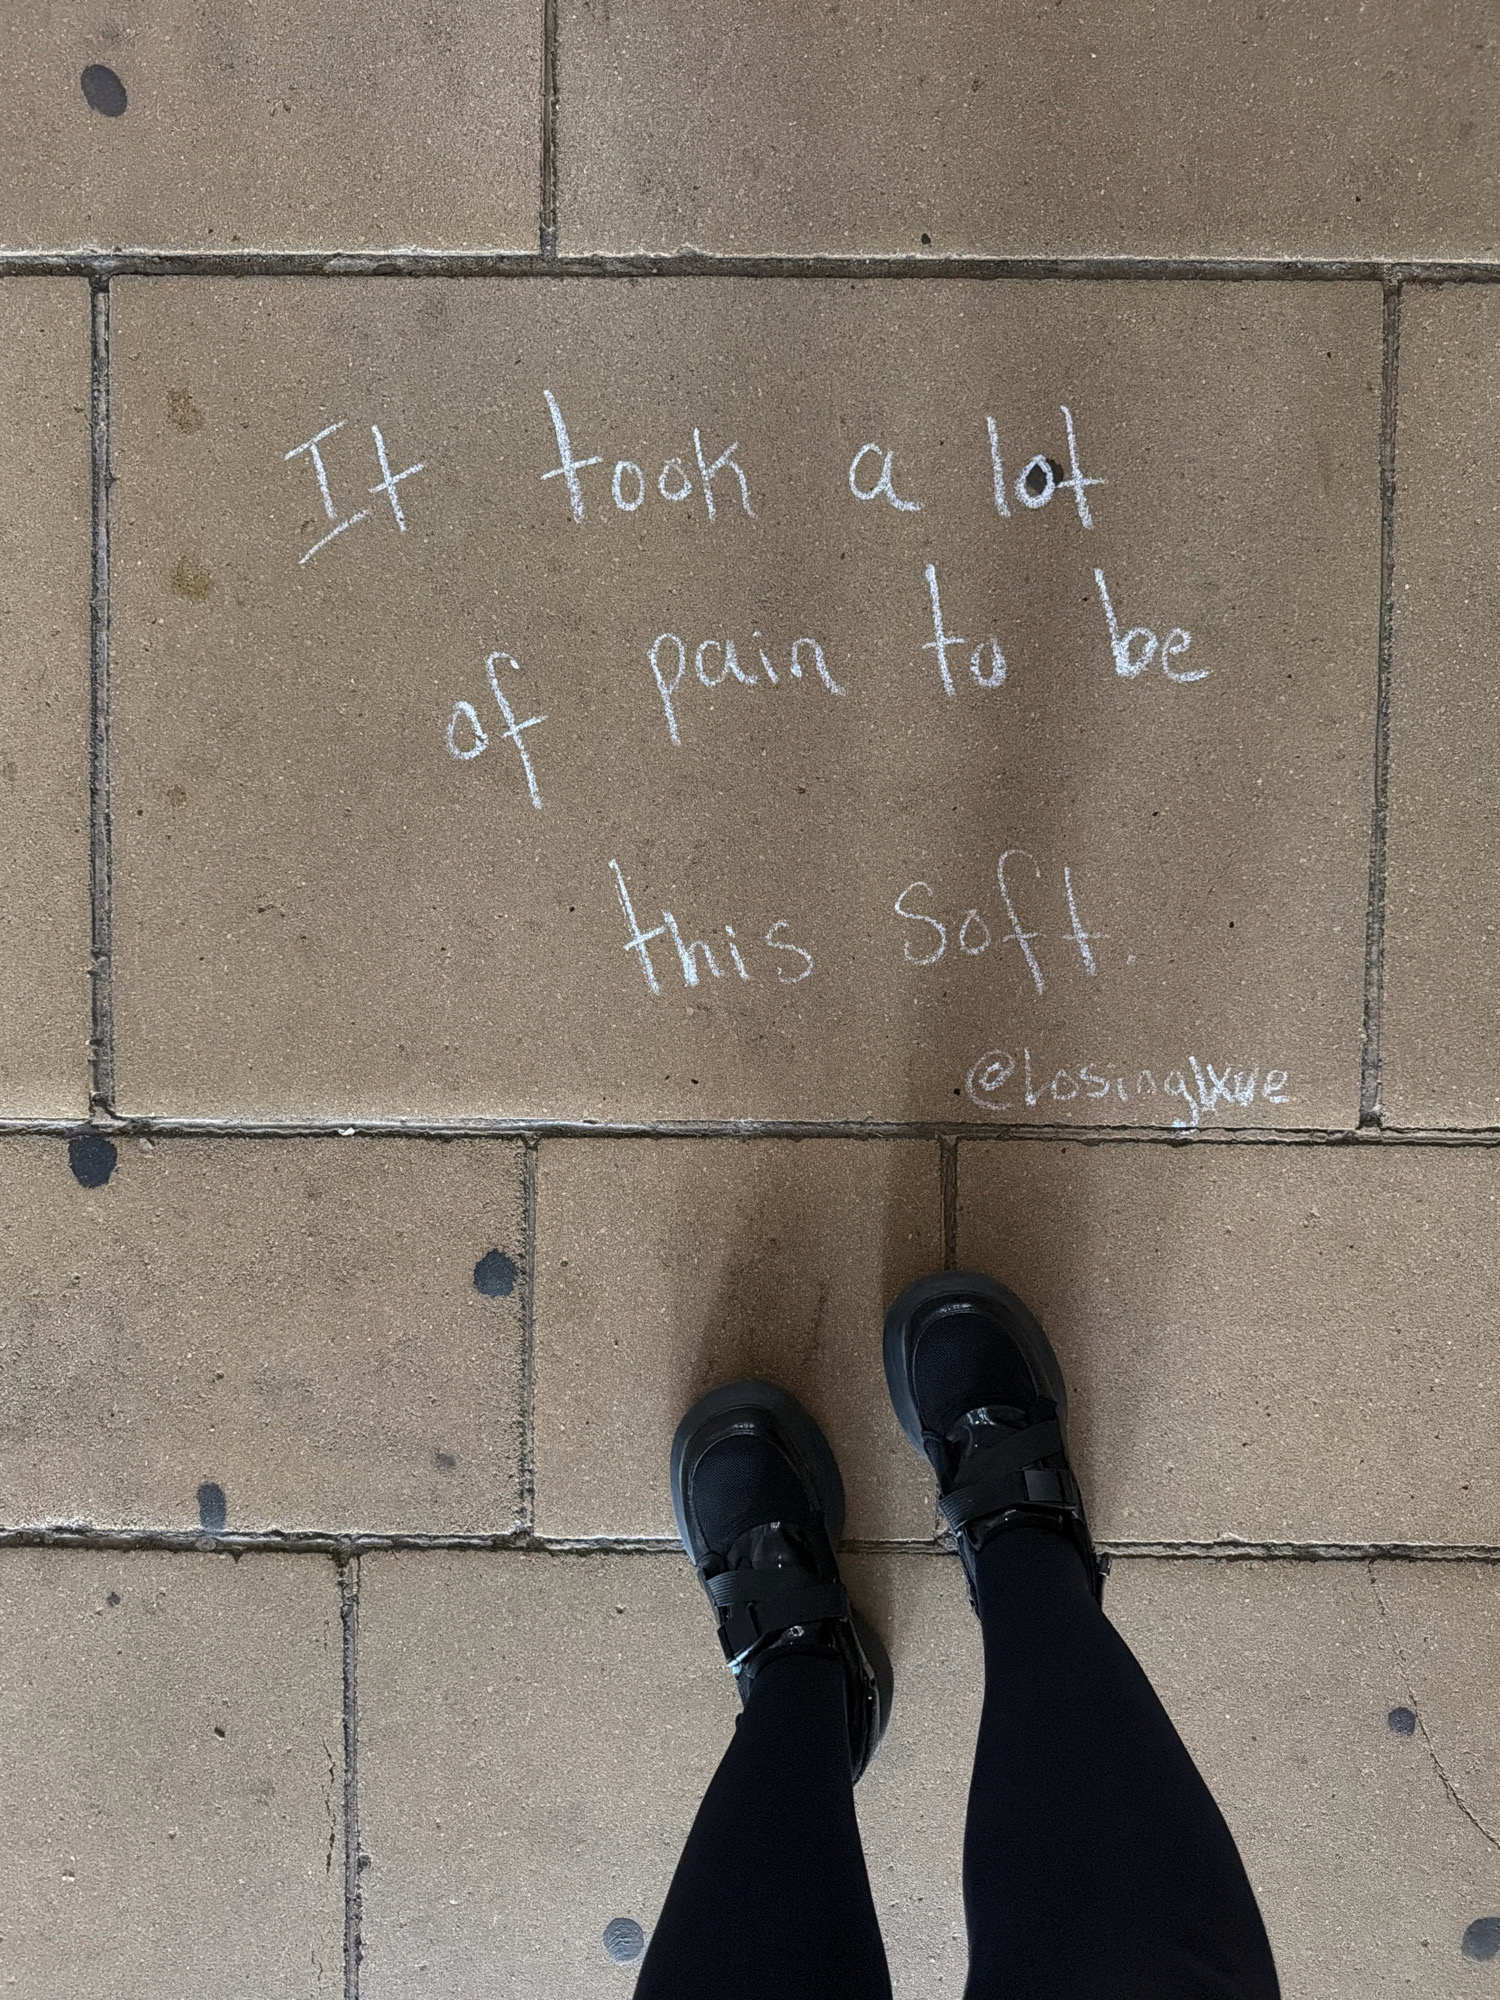 It took a lot
of pain to be
this soft.
@losinglxve